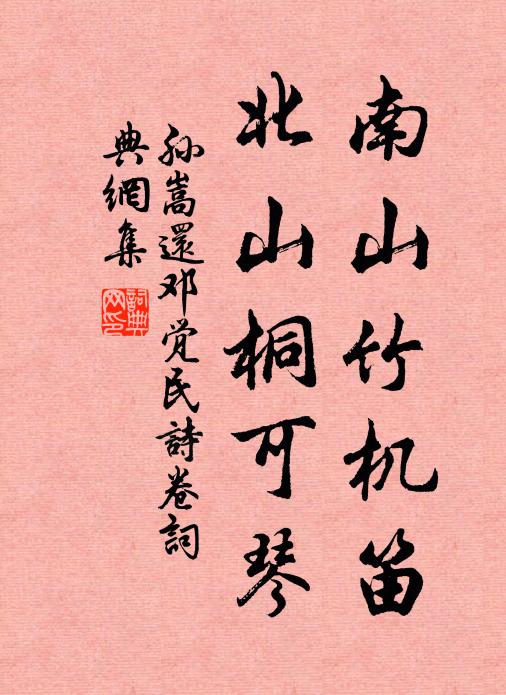 南山竹机笛
北山桐可琴
孙嵩還邓觉民詩卷詞
典網集
詞典网印